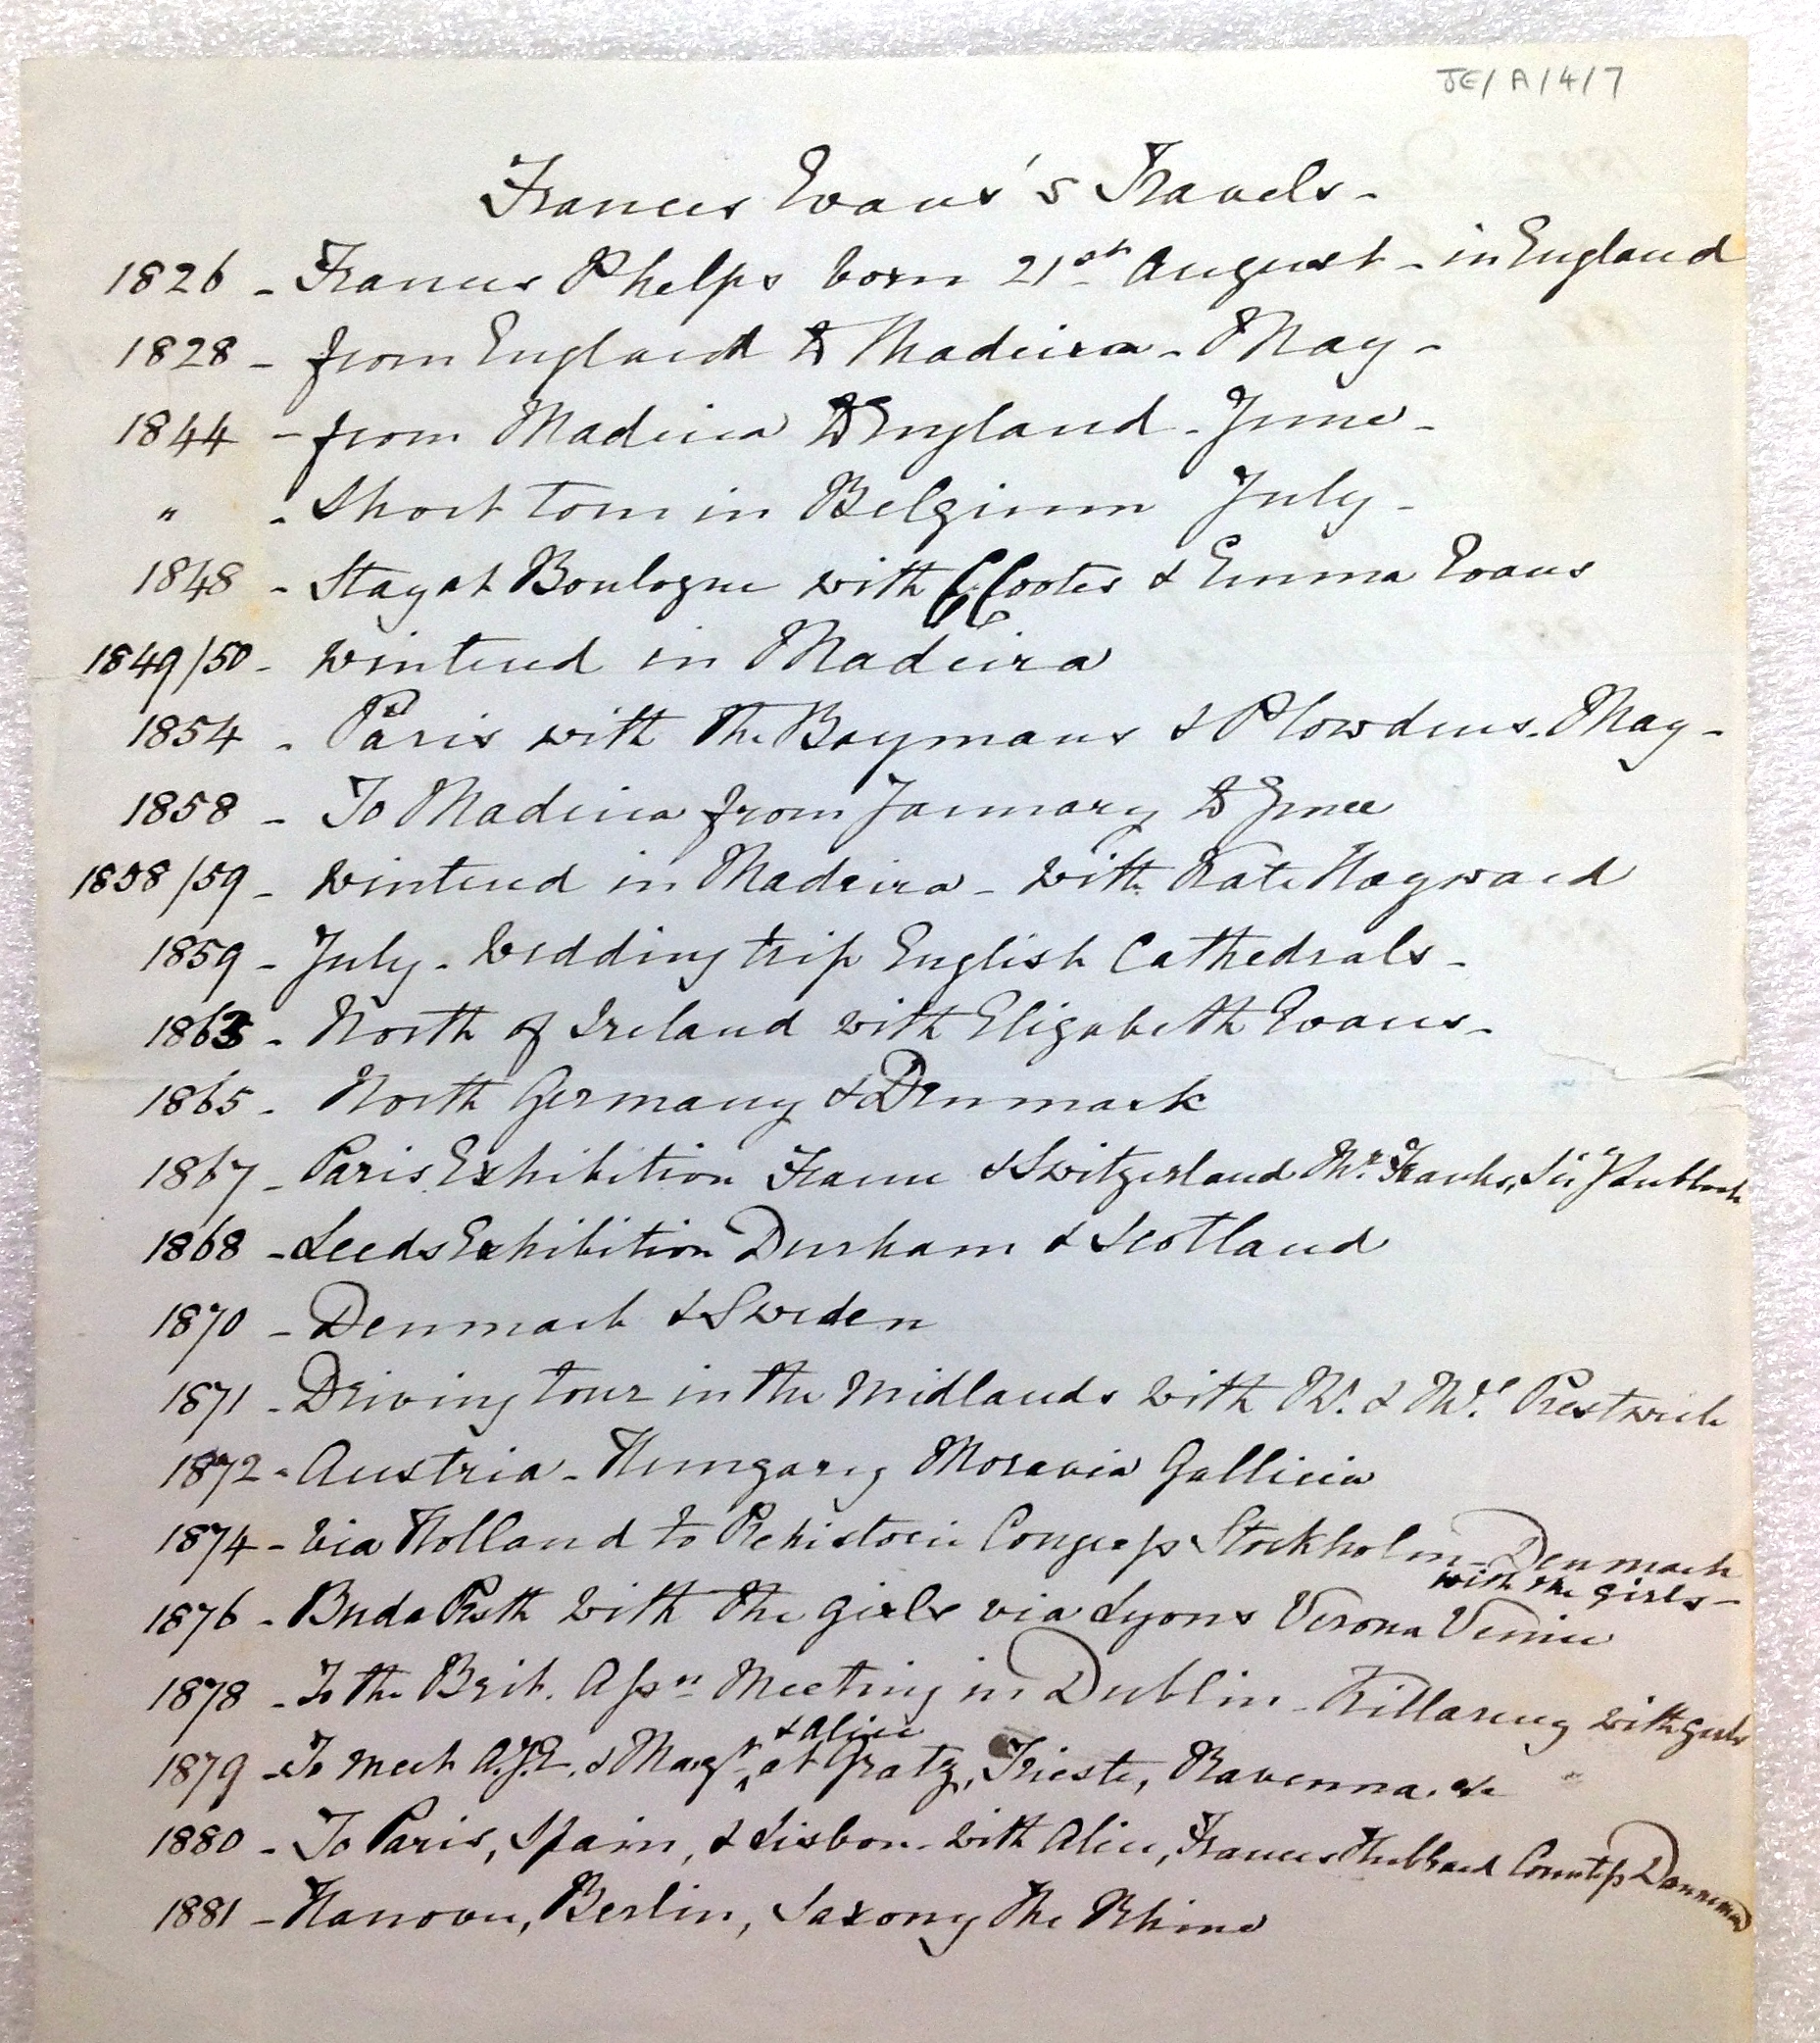 JE/A/4/7
Frances Evans's Travels -
1826 - Frances Phelps born 21st August - in England
1828 - from England to Madeira - May -
1844 - from Madeira to England - June -
" - Short tour in Belgium July -
1848 - Stay at Boulogne with & Emma Evans
1849/50 - wintered in Madeira
1854 - Paris with the Baymans & Plowdens. May -
1858 - To Madeira from January to June
1858/59 - wintered in Madeira - with Kate Hayward
1859 - July - Wedding trip English Cathedrals -
1863 - North of Ireland with Elizabeth Evans -
1865 - North Germany & Denmark
1867 - Paris Exhibition France & Switzerland Mr. Franks, Sir J Lubbock
1868 - Leeds Exhibition Durham & Scotland
1870 - Denmark & Sweden
1871 - Driving tour in the Midlands with Mr. & Mrs. Prestwich
1872 - Austria - Hungary Moravia Gallicia
1874 - via Holland to Prehistoric Congress Stockholm - Denmark
with the girls -
1876 - Buda Pesth with the girls via Lyons Verona Venice
1878 - To the Brit. Assn Meeting in Dublin - Killarney with girls
& Alice
1879 - To meet A.J.E. & Margt at Gratz, Trieste, Ravenna. &c
1880 - To Paris, Spain, & Lisbon - with Alice, Frances Hubbard Countess
1881 - Hanover, Berlin, Saxony the Rhine